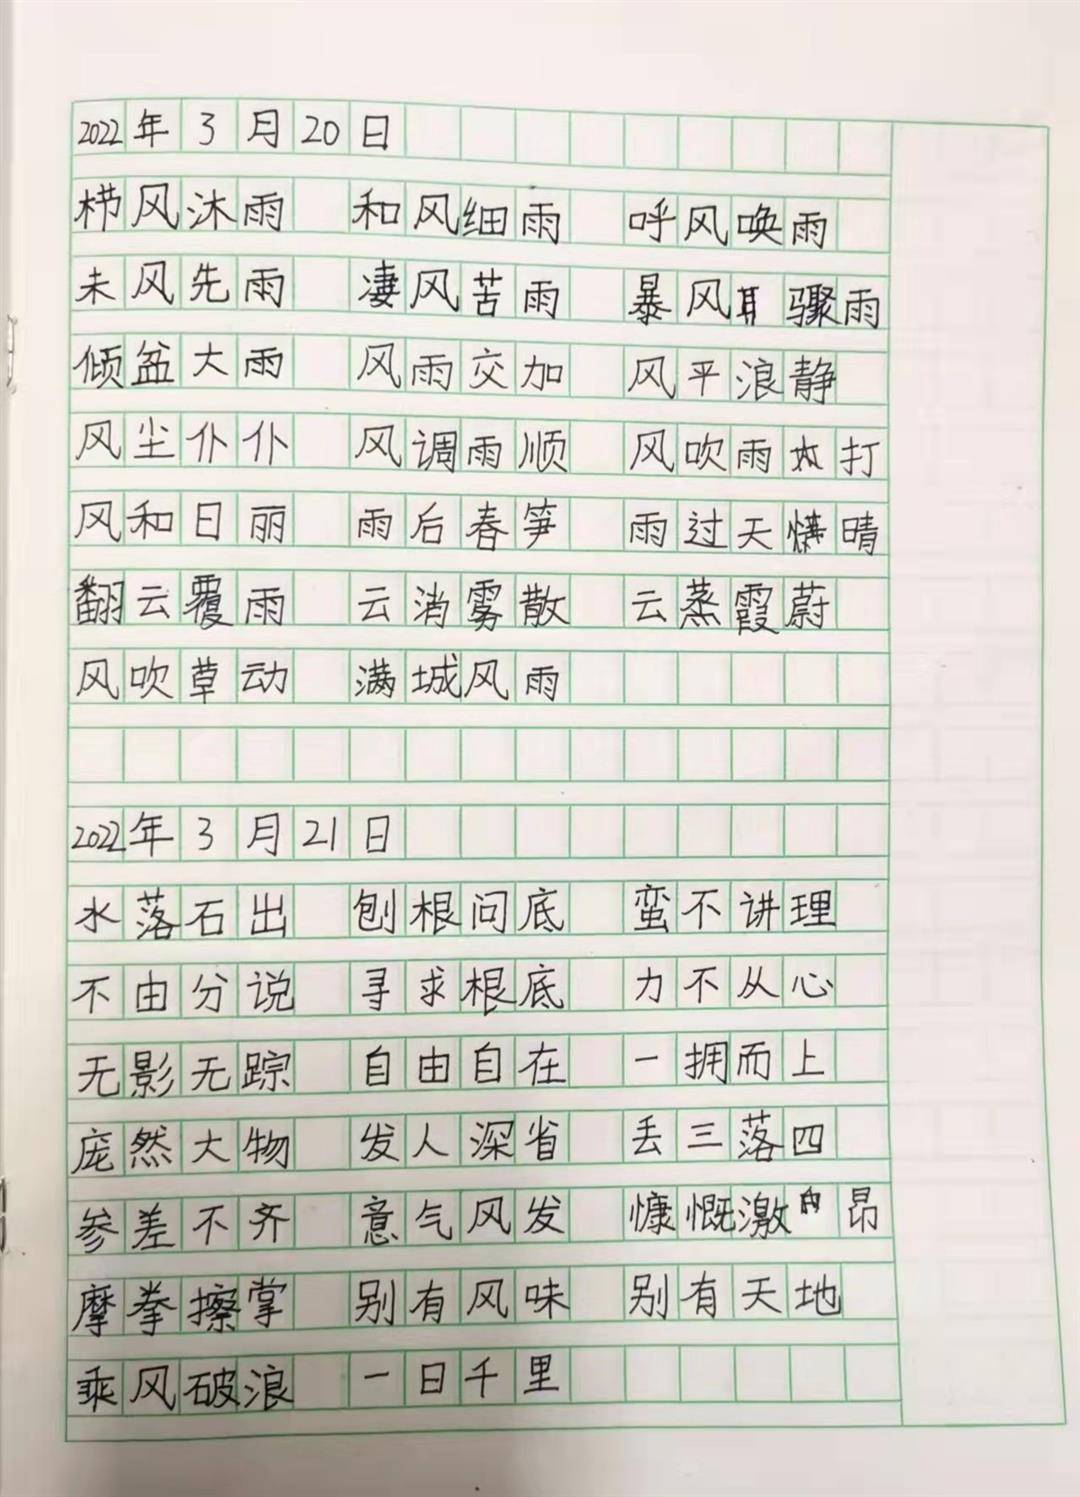 2022年3月20日
栉风沐雨 和风细雨 呼风唤雨
未风先雨 凄风苦雨 暴风骤雨
倾盆大雨 风雨交加 风平浪静
风尘仆仆 风调雨顺 风吹雨打
风和日丽 雨后春笋 雨过天晴
翻云覆雨 云消雾散 云蒸霞蔚
风吹草动 满城风雨
2022年3月21日
水落石出 刨根问底 蛮不讲理
不由分说 寻求根底 力不从心
无影无踪 自由自在 一拥而上
庞然大物 发人深省 丢三落四
参差不齐 意气风发 慷慨激昂
摩拳擦掌 别有风味 别有天地
乘风破浪 一日千里